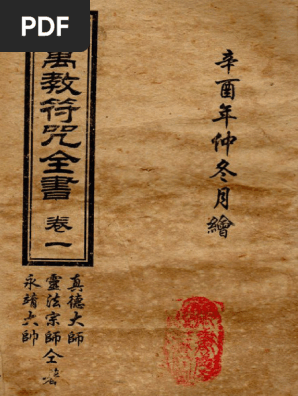 PDF
辛酉年仲冬月繪
萬教符咒全書 卷一
真德大師
靈法宗師 仝
永靖大師